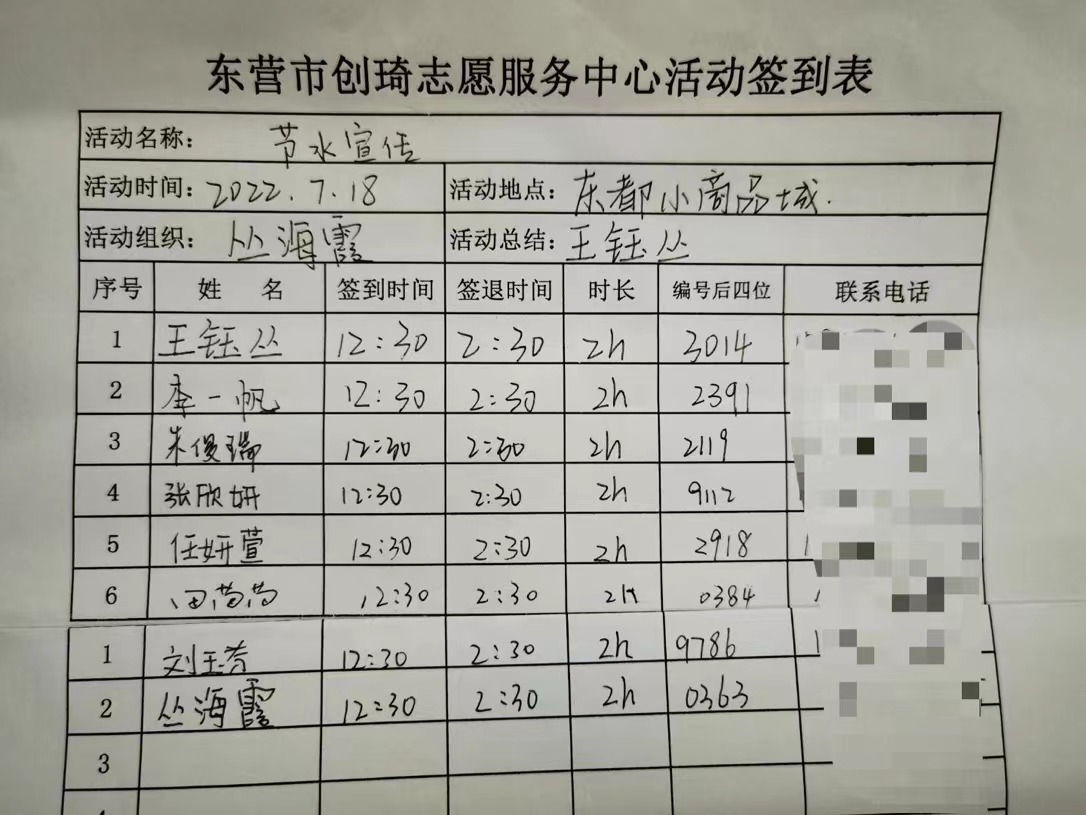 东营市创琦志愿服务中心活动签到表
活动名称： 节水宣传
活动时间：2022.7.18 活动地点：东都小商品城.
活动组织： 丛海霞 活动总结：王钰丛
序号 姓 名 签到时间 签退时间 时长 编号后四位 联系电话
1 王钰丛 12:30 2:30 2h 3014
2 李一帆 12:30 2:30 2h 2391
3 朱俊瑞 12:30 2:30 2h 2119
4 张欣妍 12:30 2:30 2h 9112
5 任妍萱 12:30 2:30 2h 2918
6 田苗苗 12:30 2:30 2h 0384
1 刘玉 12:30 2:30 2h 9786
2 丛海霞 12:30 2:30 2h 0363
3